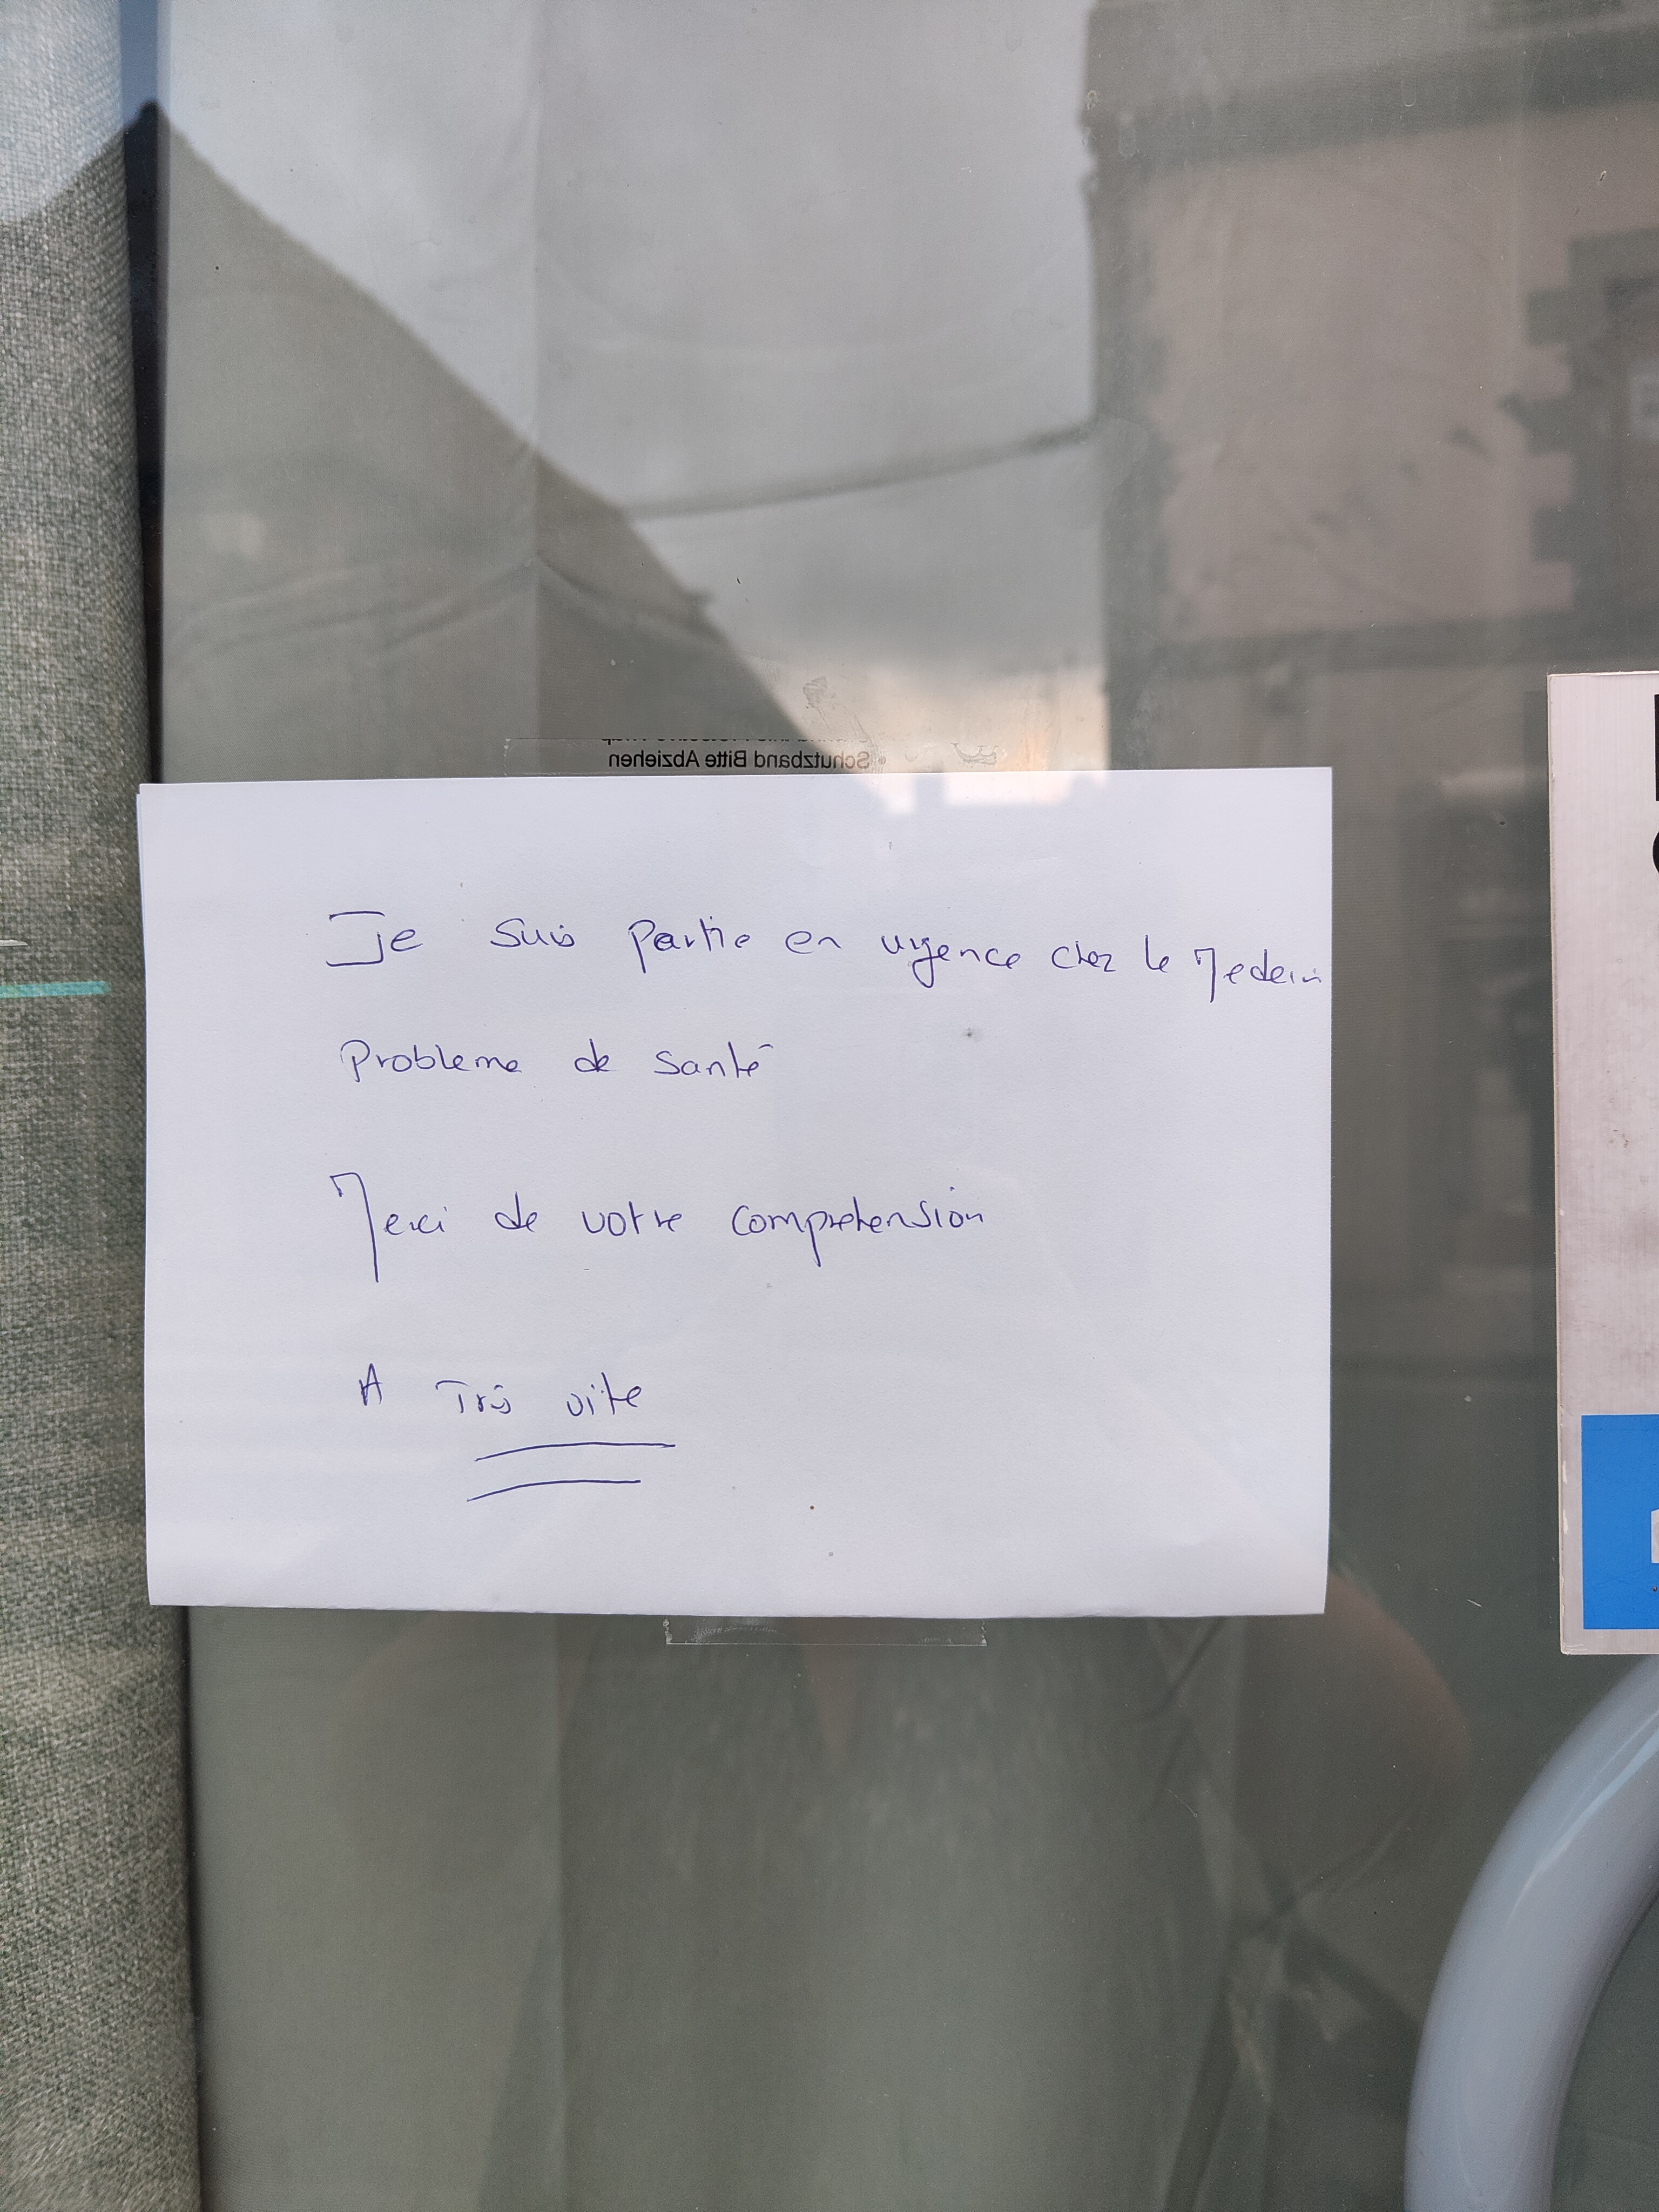 Schutzband Bitte Abziehen
Je suis partie en urgence chez le Medecin
Probleme de santé
Merci de votre comprehension
A Très vite